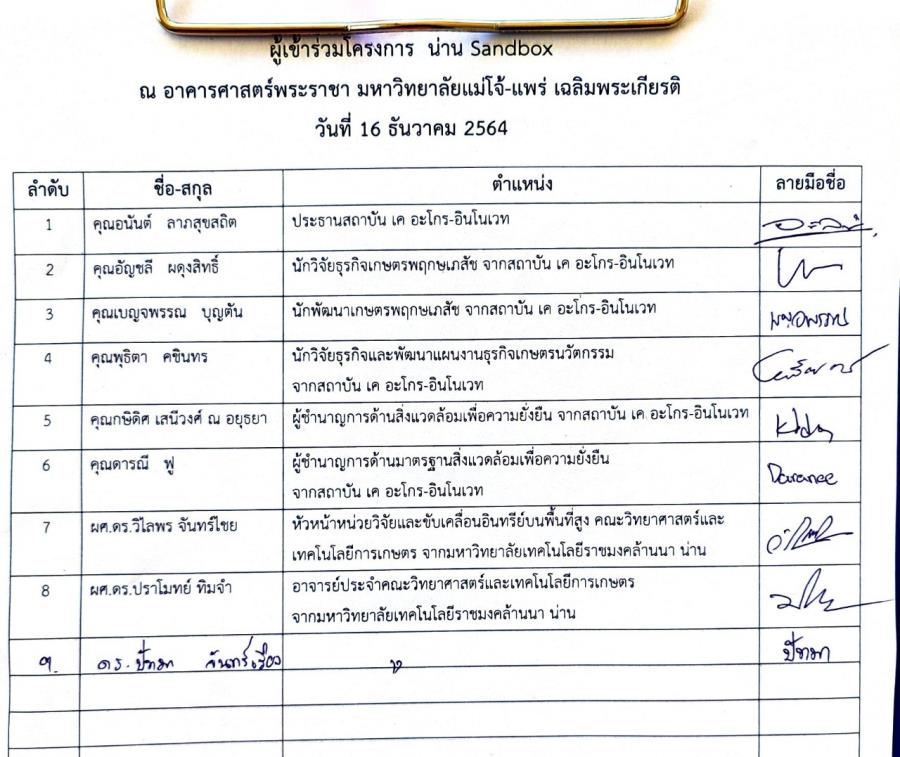 ผู้เข้าร่วมโครงการ น่าน Sandbox
ณ อาคารศาสตร์พระราชา มหาวิทยาลัยแม่โจ้-แพร่ เฉลิมพระเกียรติ
วันที่ 16 ธันวาคม 2564
ลำดับ ชื่อ-สกุล ตำแหน่ง ลายมือชื่อ
1 คุณอนันต์ ลาภสุขสถิต ประธานสถาบัน เค อะโกร-อินโนเวท
2 คุณอัญชลี ผดุงสิทธิ์ นักวิจัยธุรกิจเกษตรพฤกษเภสัช จากสถาบัน เค อะโกร-อินโนเวท
3 คุณเบญจพรรณ บุญตัน นักพัฒนาเกษตรพฤกษเภสัช จากสถาบัน เค อะโกร-อินโนเวท
4 คุณพุธิตา คชินทร นักวิจัยธุรกิจและพัฒนาแผนงานธุรกิจเกษตรนวัตกรรม
จากสถาบัน เค อะโกร-อินโนเวท
5 คุณกษิดิศ เสนีวงศ์ ณ อยุธยา ผู้ชำนาญการด้านสิ่งแวดล้อมเพื่อความยั่งยืน จากสถาบัน เค อะโกร-อินโนเวท
6 คุณดารณี ฟู ผู้ชำนาญการด้านมาตรฐานสิ่งแวดล้อมเพื่อความยั่งยืน Daranee
จากสถาบัน เค อะโกร-อินโนเวท
7 ผศ.ดร.วิไลพร จันทร์ไชย หัวหน้าหน่วยวิจัยและขับเคลื่อนอินทรีย์บนพื้นที่สูง คณะวิทยาศาสตร์และ
เทคโนโลยีการเกษตร จากมหาวิทยาลัยเทคโนโลยีราชมงคล้านนา น่าน
8 ผศ.ดร.ปราโมทย์ ทิมจำ อาจารย์ประจำคณะวิทยาศาสตร์และเทคโนโลยีการเกษตร
จากมหาวิทยาลัยเทคโนโลยีราชมงคล้านนา น่าน
๙. ดร.ปัทมา จันทร์เรือง ปัทมา